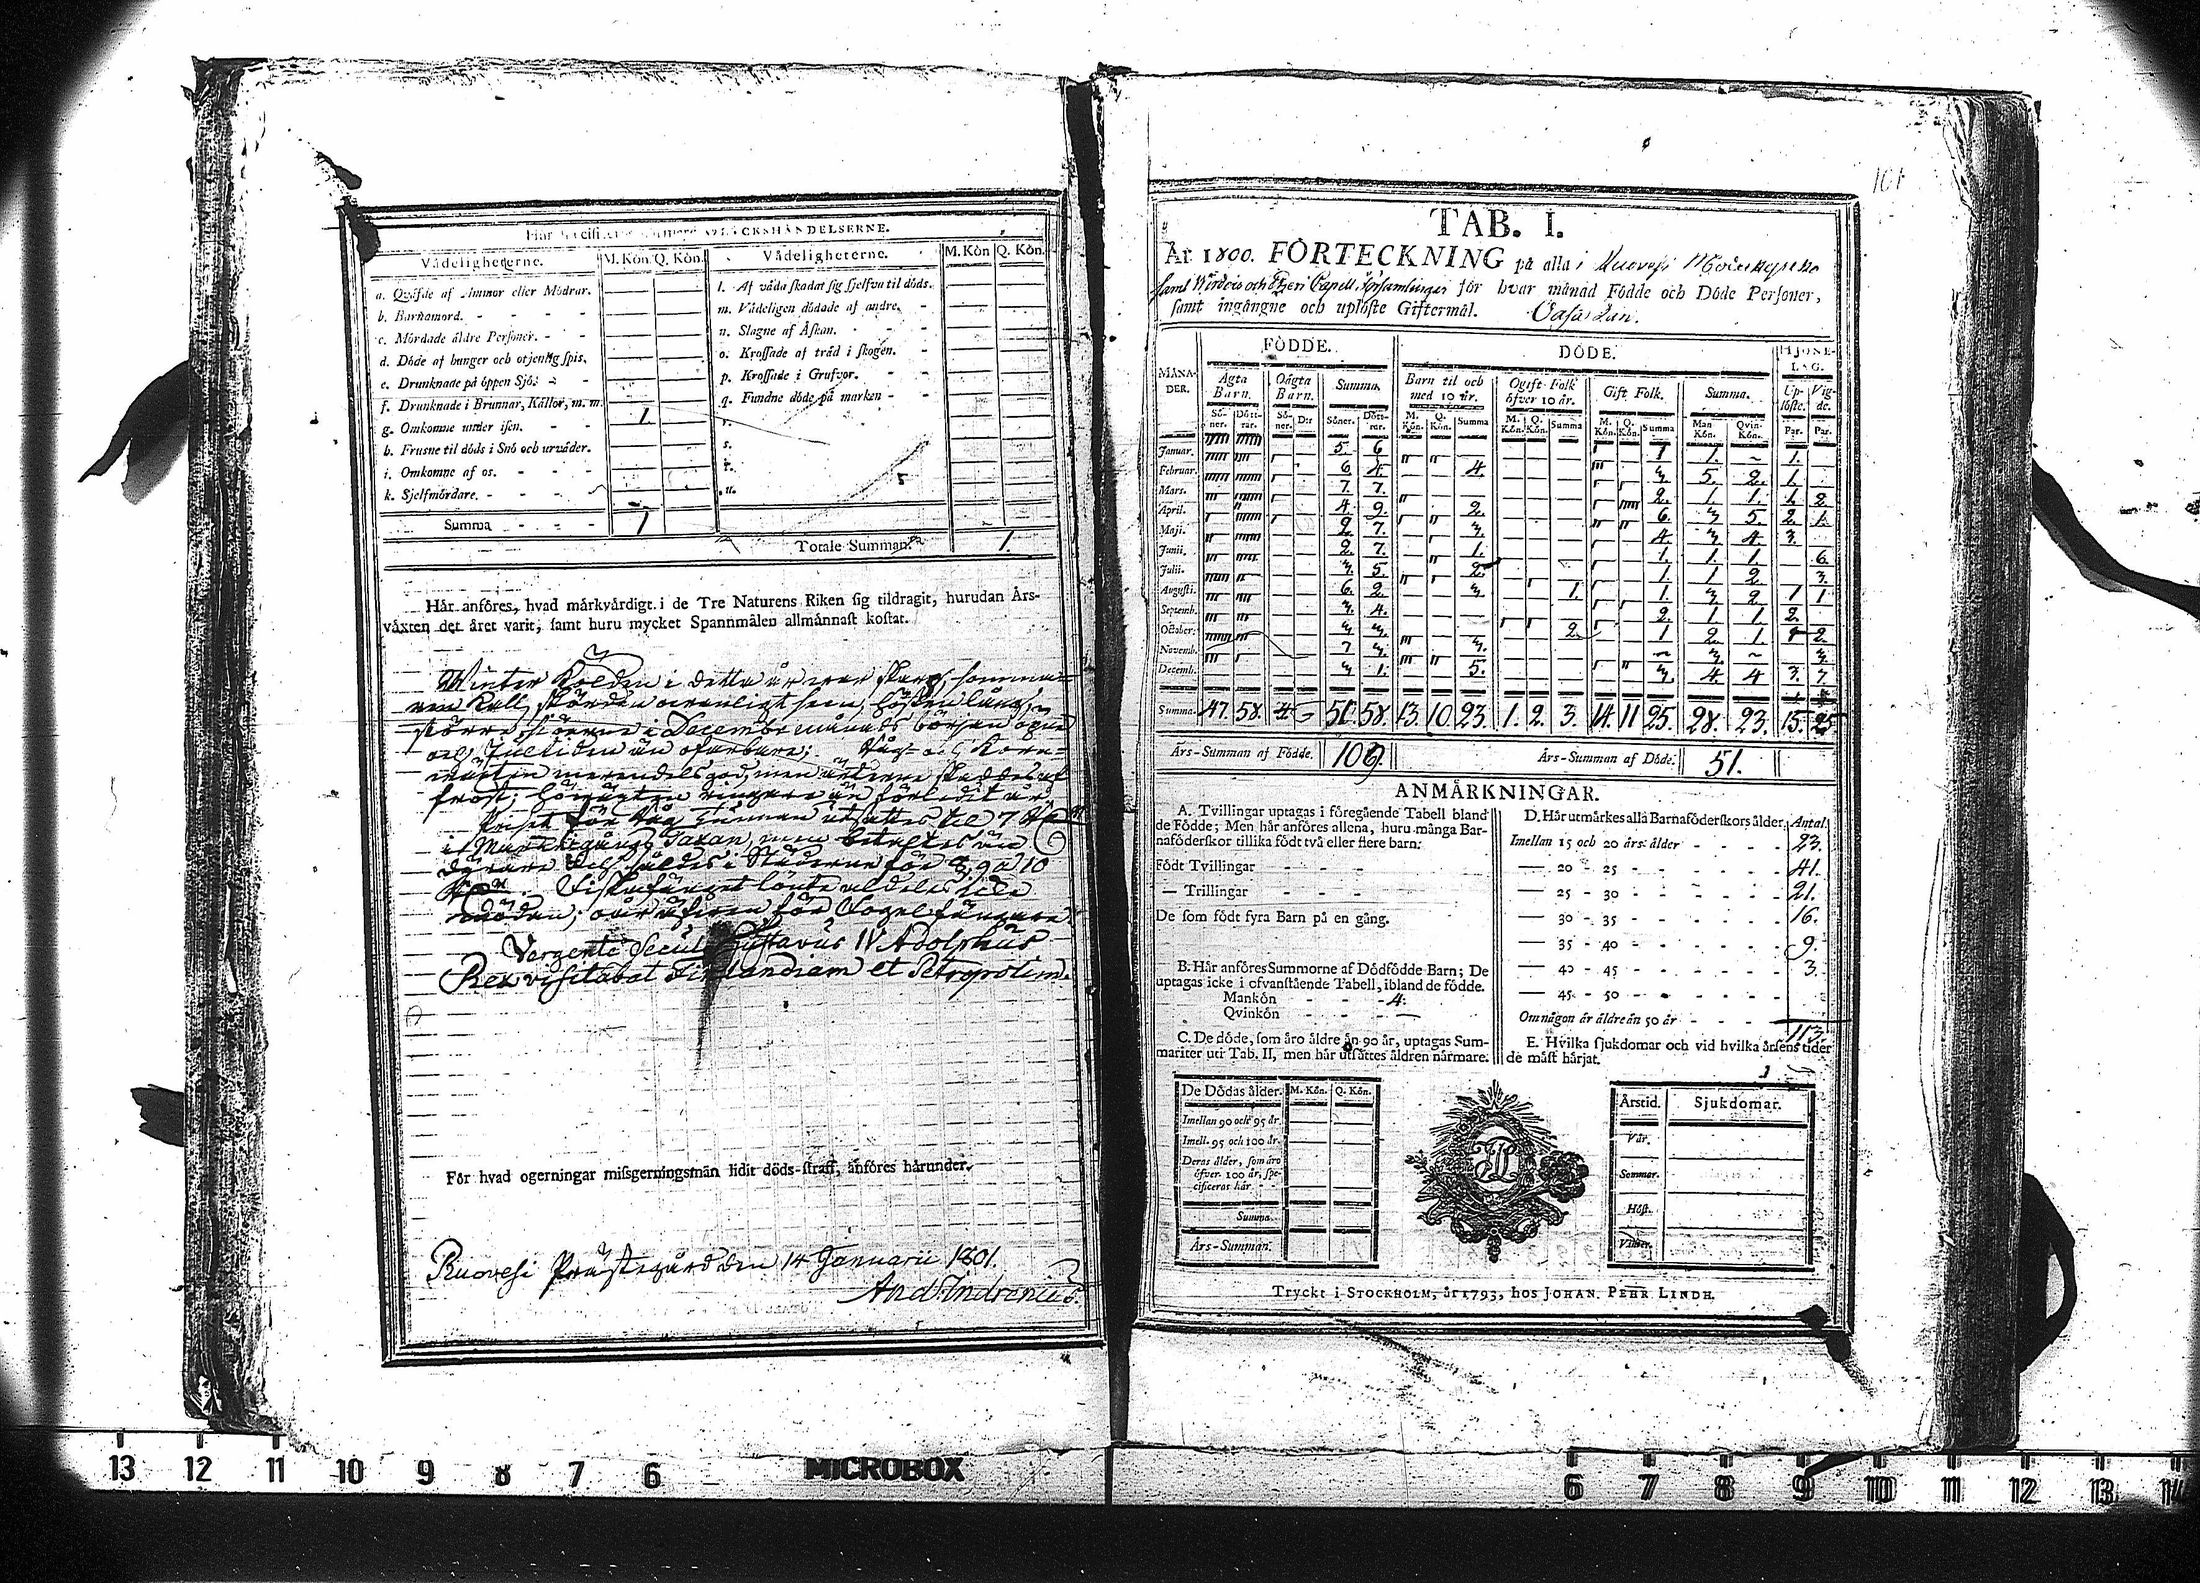 Här specificeras närmare OLYCKSHÄNDELSERNE.
Vådeligheterne. M. Kön Q. Kön. Vådeligheterne. M. Kön Q. Kön.
a. Qväfde af Ammor eller Mödrar. l. Af våda skadat sig sjelfva til döds.
b. Barnamord. - - - - m. Vådeligen dödade af andre. -
c. Mördade äldre Personer. - - n. Slagne af Åskan. - - -
d. Döde af hunger och otjenlig spis. o. Krossade af träd i skogen. -
e. Drunknade på öppen Sjö. - - p. Krossade i Grufvor. - -
f. Drunknade i Brunnar, Källor, m. m. 1. q. Fundne döde på marken - -
g. Omkomne under isen. - - r.
h. Frusne til döds i Snö och urväder. s.
i. Omkomne af os. - - - t.
k. Sjelfmördare. - - - - u.
Summa - - - 1
Totale Summan. 1.
Här anföres, hvad märkvärdigt i de Tre Naturens Riken sig tildragit, hurudan Års-
växten det året varit, samt huru mycket Spannmålen allmännast kostat.
Winter Kölden i detta år war skarp, somma-
ren kall, skörden ovanligt sen, hösten lång,
större i December månads början öpne
och Jultiden än ofarbare; Råg- och Korn-
wäxten merendels god, men ärterne skaddes af
frost; höwäxten ringare än förledit år.
Priset för Råg Tunnan utsattes til 7
i Markegångs Taxan, men betaltes än
dyrare och såldes i Städerne för 8, 9 a 10
Fiskafänget lönte aldeles icke
mödan; Fogelfångare.
Vergente Secul Gustavus IV Adolphus
Rex visitabat Finlandiam et Petropolim.
För hvad ogerningar missgerningsmän lidit döds-straff, anföres härunder.
Ruovesi Prästegård den 14 Januarii 1801.
And. Indrenius.
101
TAB. I.
År 1800. FÖRTECKNING på alla i Ruovesi Moderkyrko
samt Wirdois och Ätzeri Capell Församlingar för hvar månad Födde och Döde Personer,
samt ingångne och uplöste Giftermål. Vasa Län.
MÅNA-DER. FÖDDE. DÖDE. HJONE-LAG.
Ägta Barn. Oägta Barn. Summa. Barn til och med 10 år. Ogift Folk öfver 10 år. Gift Folk. Summa. Up-löste. Vig-de.
Sö-ner. Dött-rar. Sö-ner. D:r Söner. Dött-rar. M. Kön. Q. Kön. Summa M. Kön. Q. Kön. Summa M. Kön. Q. Kön. Summa Man Kön. Qvin-Kön. Par. Par.
Januar. 5. 6 1 1. ~ 1.
Februar. 6 4. 4. 3. 5. 2. 1.
Mars. 7. 7. 2. 1. 1. 1. 2.
April. 4. 9. 2. 6. 3. 5. 2. 1.
Maji. 2. 7. 3. 4. 3. 4. 3.
Junii. 2. 7. 1. 1. 1. 1. 6.
Julii. 3. 5. 2. 1. 1 2. 3.
Augusti. 6. 2. 3. 1. 1. 3. 2. 1 1
Septemb. 3. 4. 2. 1 1 2.
October. 3. 3. 2. 1 2. 1 1 2.
Novemb. 7 3. 3. ~ 3. ~ 3.
Decemb. 3 1. 5. 3. 4. 4 3. 7
Summa. 47. 58. 4 51. 58. 13. 10. 23. 1. 2. 3. 14. 11 25. 28. 23. 15. 25
Års-Summan af Födde. 109. Års-Summan af Döde. 51.
ANMÄRKNINGAR.
A. Tvillingar uptagas i föregående Tabell bland
de Födde; Men här anföres allena, huru många Bar-
naföderskor tillika födt två eller flere barn:
Födt Tvillingar - - - -
— Trillingar - - - -
De som födt fyra Barn på en gång.
B. Här anföres Summorne af Dödfödde Barn; De
uptagas icke i ofvanstående Tabell, ibland de födde.
Mankön - - - 4.
Qvinkön - - - —
C. De döde, som äro äldre än 90 år, uptagas Sum-
mariter uti Tab. II, men här utsättes åldren närmare.
D. Här utmärkes alla Barnaföderskors ålder. Antal.
Imellan 15 och 20 års ålder - - - - 23.
— 20 - 25 - - - - - - 41.
— 25 - 30 - - - - - - 21.
— 30 - 35 - - - - - - 16.
— 35 - 40 - - - - - - 9.
— 40 - 45 - - - - - - 3.
— 45 - 50 - - - - - -
Om någon är äldre än 50 år - - - -
113.
E. Hvilka sjukdomar och vid hvilka årsens tider
de mäst härjat.
De Dödas ålder. M. Kön. Q. Kön.
Imellan 90 och 95 år.
Imell. 95 och 100 år.
Deras ålder, som äro
öfver 100 år, spe-
cificeras här - -
Summa.
Års-Summan.
Årstid. Sjukdomar.
Vår.
Sommar.
Höst.
Vinter.
Tryckt i STOCKHOLM, år 1793, hos JOHAN. PEHR LINDH.
13 12 11 10 9 8 7 6 MICROBOX 6 7 8 9 10 11 12 13 14